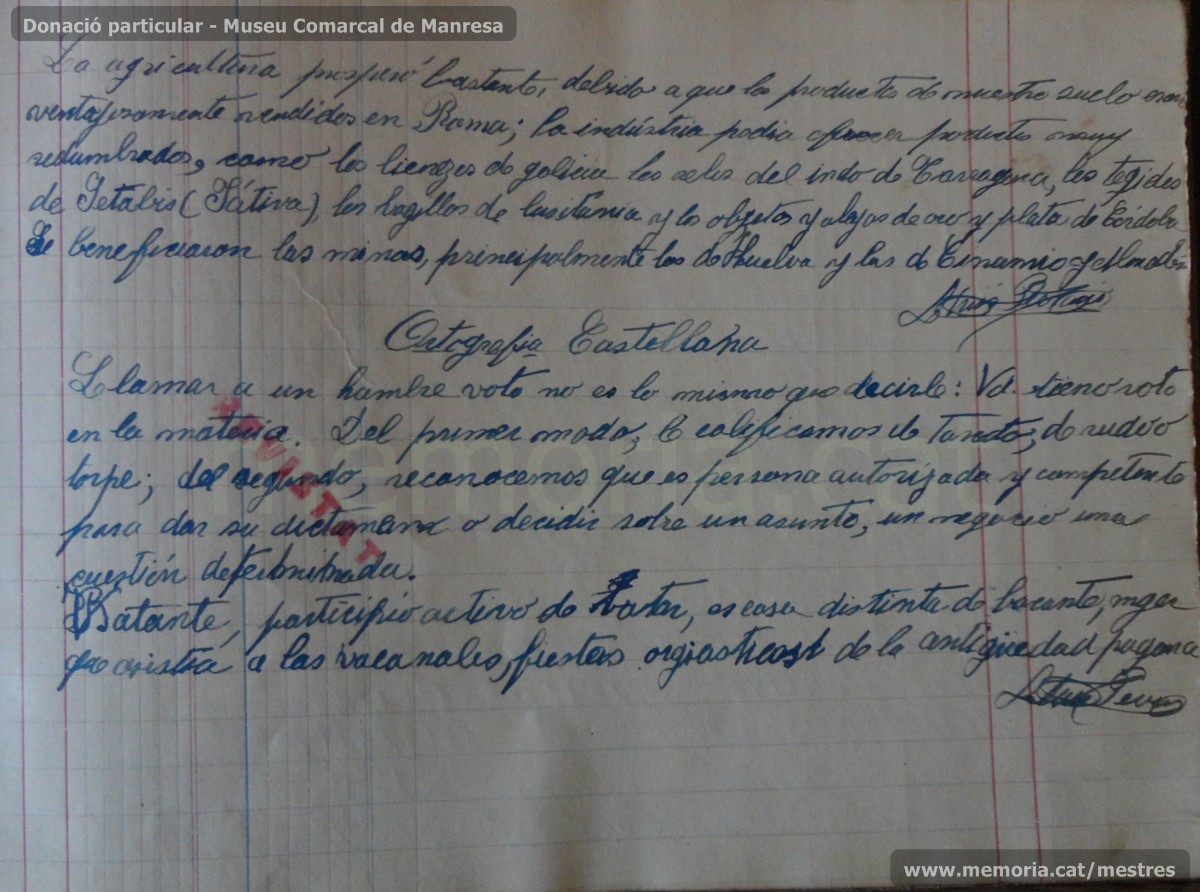 Donació particular - Museu Comarcal de Manresa
La agricultura prosperó bastante, debido a que los productos de nuestro suelo eran
ventajosamente vendidos en Roma; la indústria podia ofrecer productos muy
redumbrados, como los lienzos de galicia los del de Tarragona, los tegidos
de Setabis (Játiva), los de lusitania y los objetos y alajas de oro y plata de Córdoba
Se beneficiaron las minas, principalmente las de Huelva y las de
Ortografia Castellana
Llamar a un hombre voto no es lo mismo que decirle: Vd. tiene voto
en la materia. Del primer modo, le calificamos de tardo, de rudo o
torpe; del segundo, reconocemos que es persona autorizada y competente
para dar su dictamen o decidir sobre un asunto, un negocio una
cuestión determinada.
Batante, participio activo de batir, es cosa distinta de bacante, mujer
que asistia a las vacanales, fiestas orgiasticas de la antigüedad pagana
REVISTAT
memoria.cat
www.memoria.cat/mestres